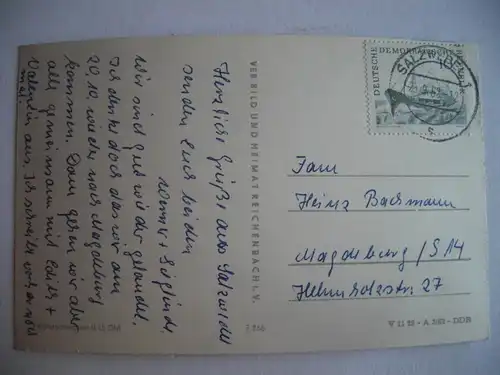 Herzliche Grüße aus Salzwedel
senden Euch beiden
Werner + Sieglinde.
Wir sind gut wieder gelandet.
Ich denke doch das wir am
20.10. wieder nach Magdeburg
kommen. Dann gehen wir aber
alle gemeinsam mit Edith +
Valentin aus. Ich schreibe vorher noch
mal.
VEB BILD UND HEIMAT REICHENBACH I. V.
DEUTSCHE DEMOKRATISCHE
SALZWEDEL
Fam
Heinz Bachmann
Magdeburg / S 14
Helmholzstr. 27
V 11 28 - A 363 - DDR